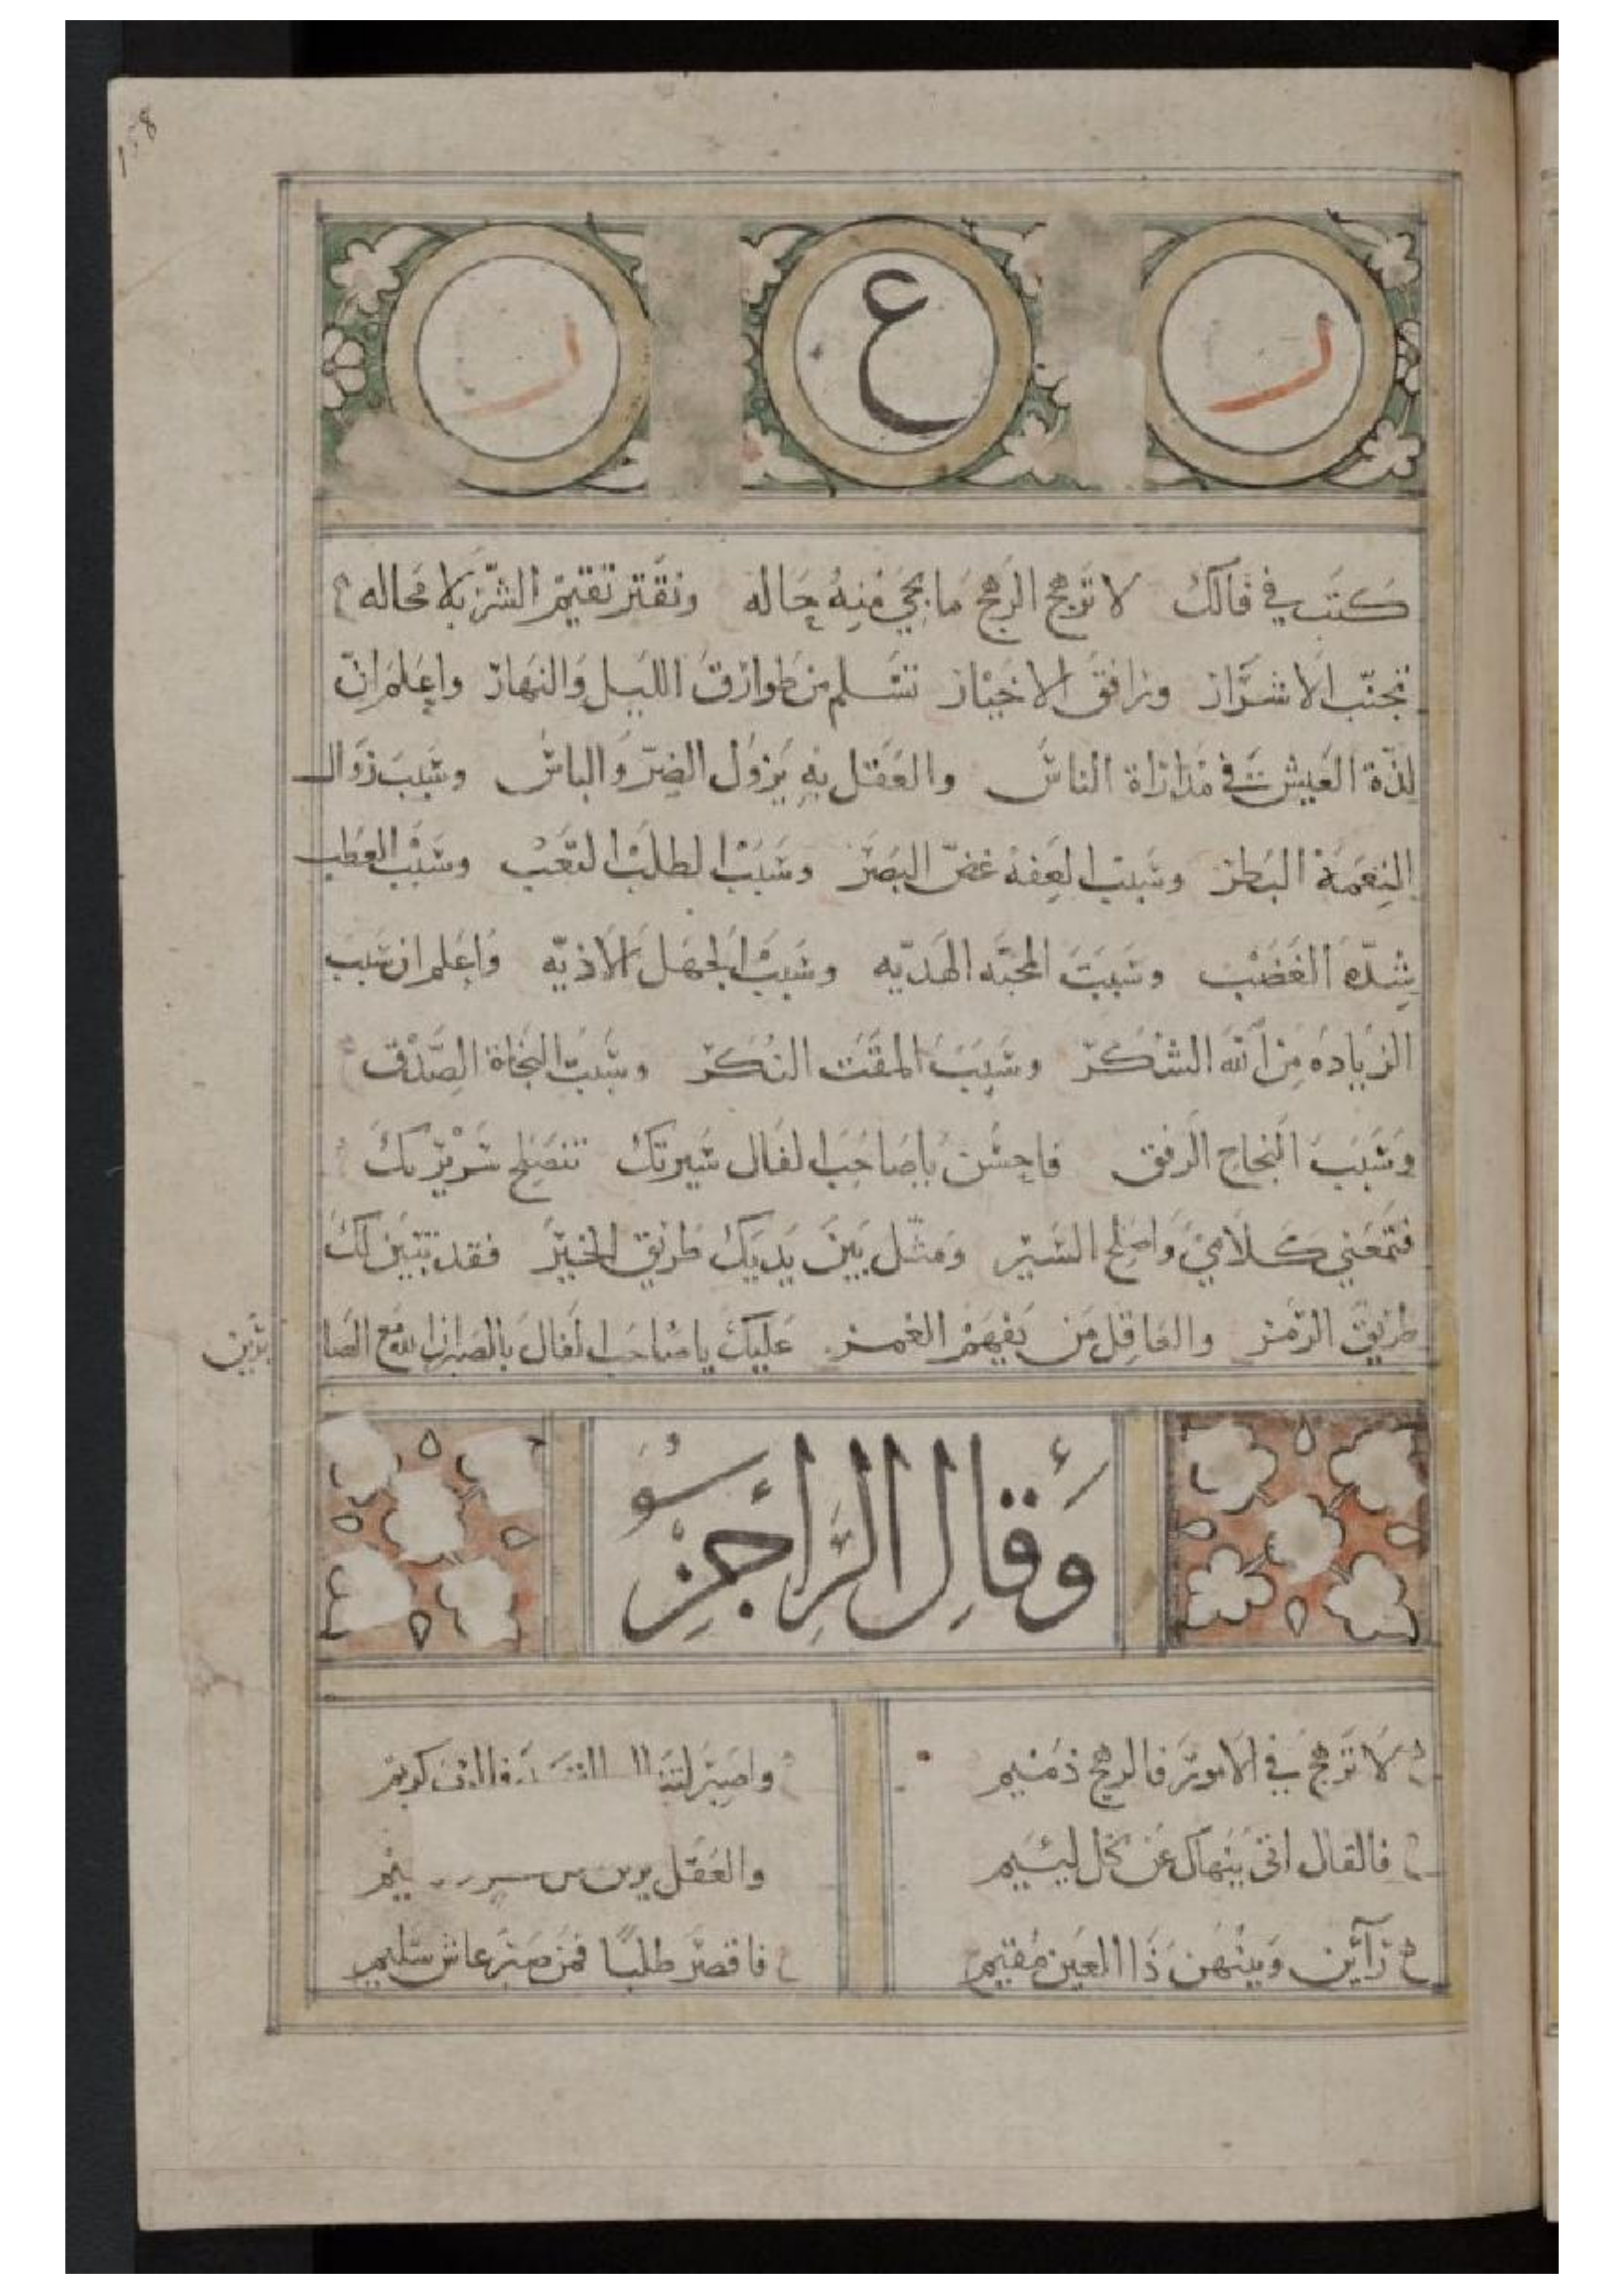 158
ر ع ر
كتب في فالك لا ترجح الرجح ما يجي منه حاله وتقتر تقيم الشر بلا محاله
تجنب الاشرار ورافق الاخيار تسلم من طوارق الليل والنهار واعلم ان
لذة العيش في مداراة الناس والعقل به يزول الضر والباس وسبب زوال
النعمة البطر وسبب العفه غض البصر وسبب الطلب التعب وسبب العطب
شدة الغضب وسبب المحبه الهديه وسبب الجهل الاذيه واعلم ان سبب
الزياده من الله الشكر وسبب المقت النكر وسبب النجاة الصدق
وسبب النجاح الرفق فاحسن يا صاحب الفال سيرتك تنصلح سريرتك
فتمعني كلامي واصلح السير ومثل بين يديك طريق الخير فقد تبين لك
طريق الرمز والعاقل من يفهم الغمز عليك يا صاحب الفال بالصبر ان الله مع الصا
برين
وقال الراجز
لا ترجح في الامور فالرجح ذميم واصبر كريم
فالفال اتى ينهاك عن كل لئيم والعقل
رأين وبينهن ذا العين مقيم فاقصر طلبا فمن صبر عاش سليم